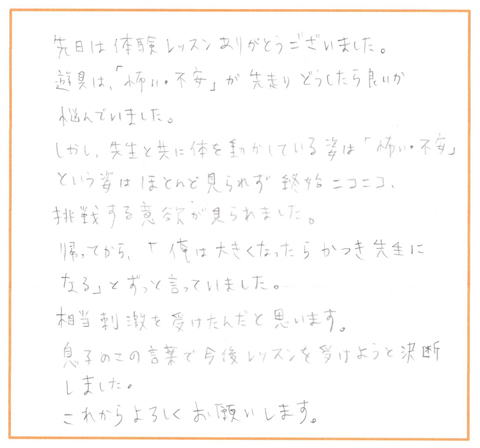 先日は体験レッスンありがとうございました。
遊具は、「怖い・不安」が先走りどうしたら良いか
悩んでいました。
しかし、先生と共に体を動かしている姿は「怖い・不安」
という姿はほとんど見られず終始ニコニコ、
挑戦する意欲が見られました。
帰ってから、「俺は大きくなったらかつき先生に
なる」とずっと言っていました。
相当刺激を受けたんだと思います。
息子のこの言葉で今後レッスンを受けようと決断
しました。
これからよろしくお願いします。